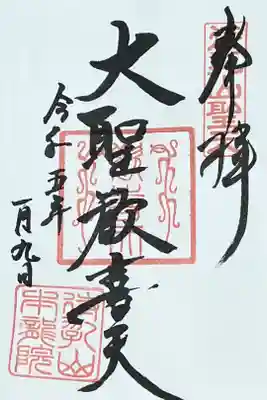 奉拝
大聖歓喜天
令和五年
一月九日
待乳山
本龍院